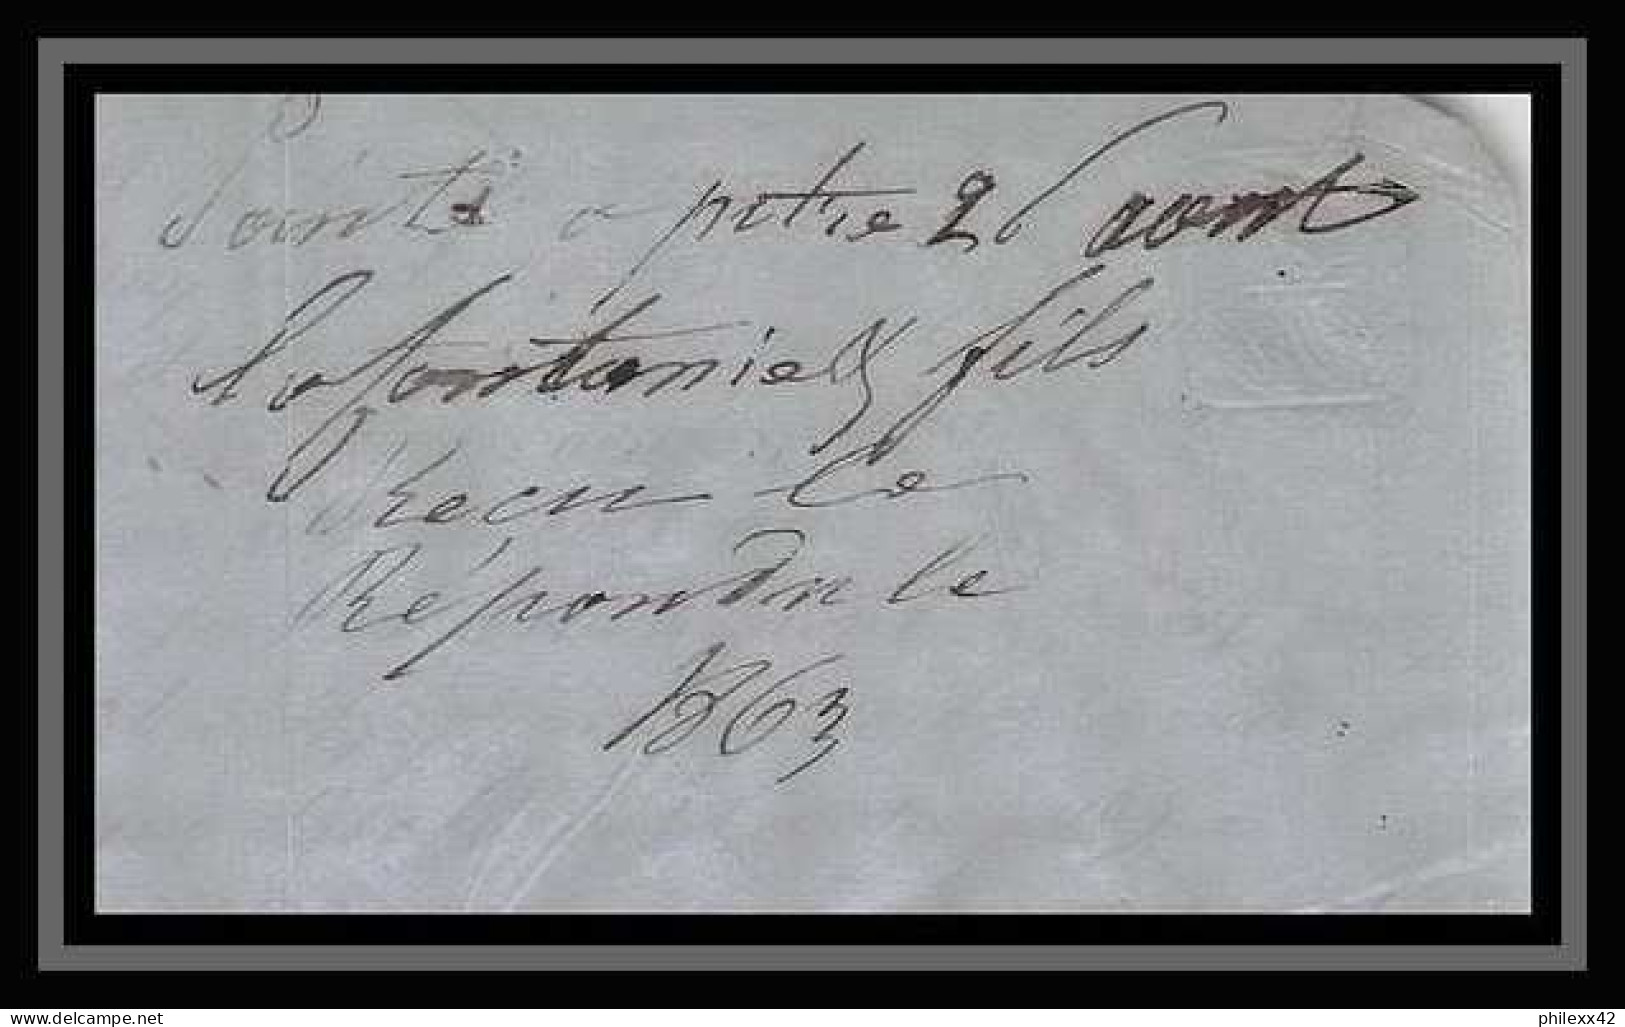 Pointe a pitre 26 aout
Lafontanie & fils
Recu le
Répondu le
1863
www.delcampe.net
philexx42